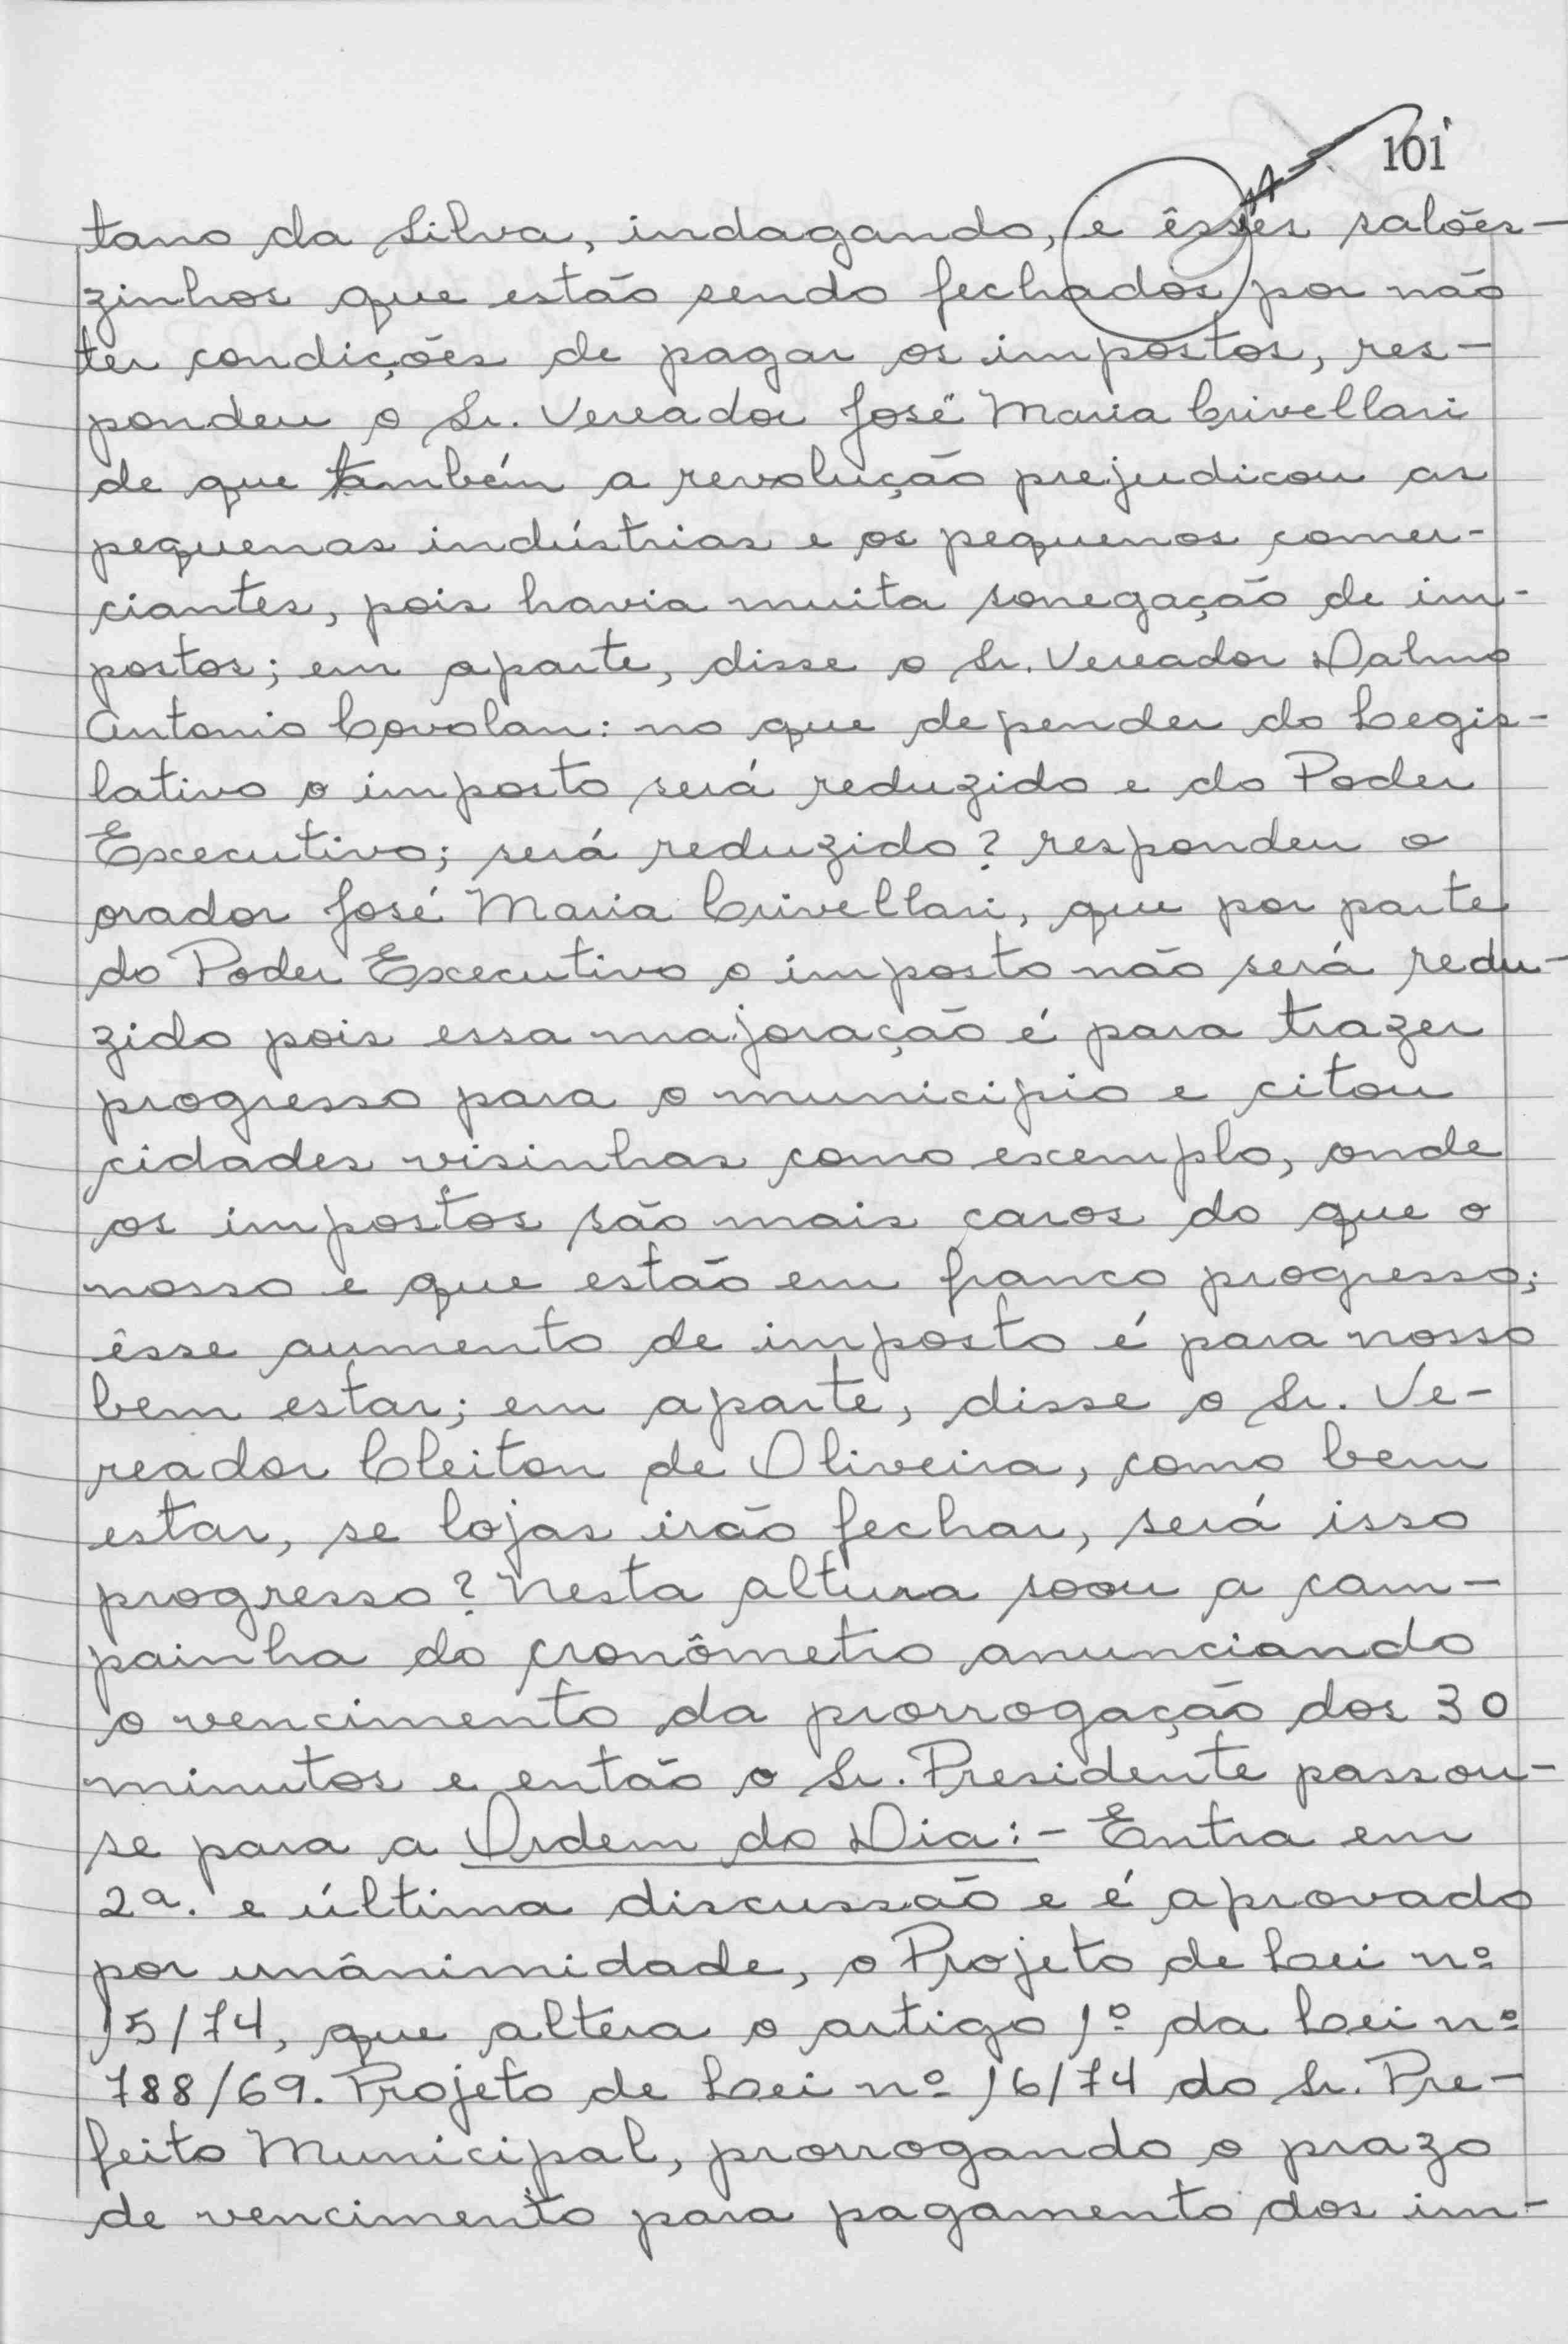 101
tano da Silva, indagando, e êsses salões-
zinhos que estão sendo fechados por não
ter condições de pagar os impostos, res-
pondeu o Sr. Vereador José Maria Crivellari
de que também a revolução prejudicou as
pequenas indústrias e os pequenos comer-
ciantes, pois havia muita sonegação de im-
postos; em aparte, disse o Sr. Vereador Dalmo
Antonio Covolan: no que depender do Legis-
lativo o imposto será reduzido e do Poder
Executivo; será reduzido? respondeu o
orador José Maria Crivellari, que por parte
do Poder Executivo o imposto não será redu-
zido pois essa majoração é para trazer
progresso para o municipio e citou
cidades visinhas como exemplo, onde
os impostos são mais caros do que o
nosso e que estão em franco progresso;
êsse aumento de imposto é para nosso
bem estar; em aparte, disse o Sr. Ve-
reador Cleiton de Oliveira, como bem
estar, se lojas irão fechar, será isso
progresso? Nesta altura soou a cam-
painha do cronômetro anunciando
o vencimento da prorrogação dos 30
minutos e então o Sr. Presidente passou-
se para a Ordem do Dia:- Entra em
2a. e última discussão e é aprovado
por unânimidade, o Projeto de Lei nº
15/74, que altera o artigo 1º da Lei nº
788/69. Projeto de Lei nº 16/74 do Sr. Pre-
feito Municipal, prorrogando o prazo
de vencimento para pagamento dos im-